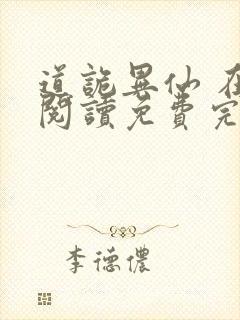 道詭異仙 在
閱讀免費完
李德儂